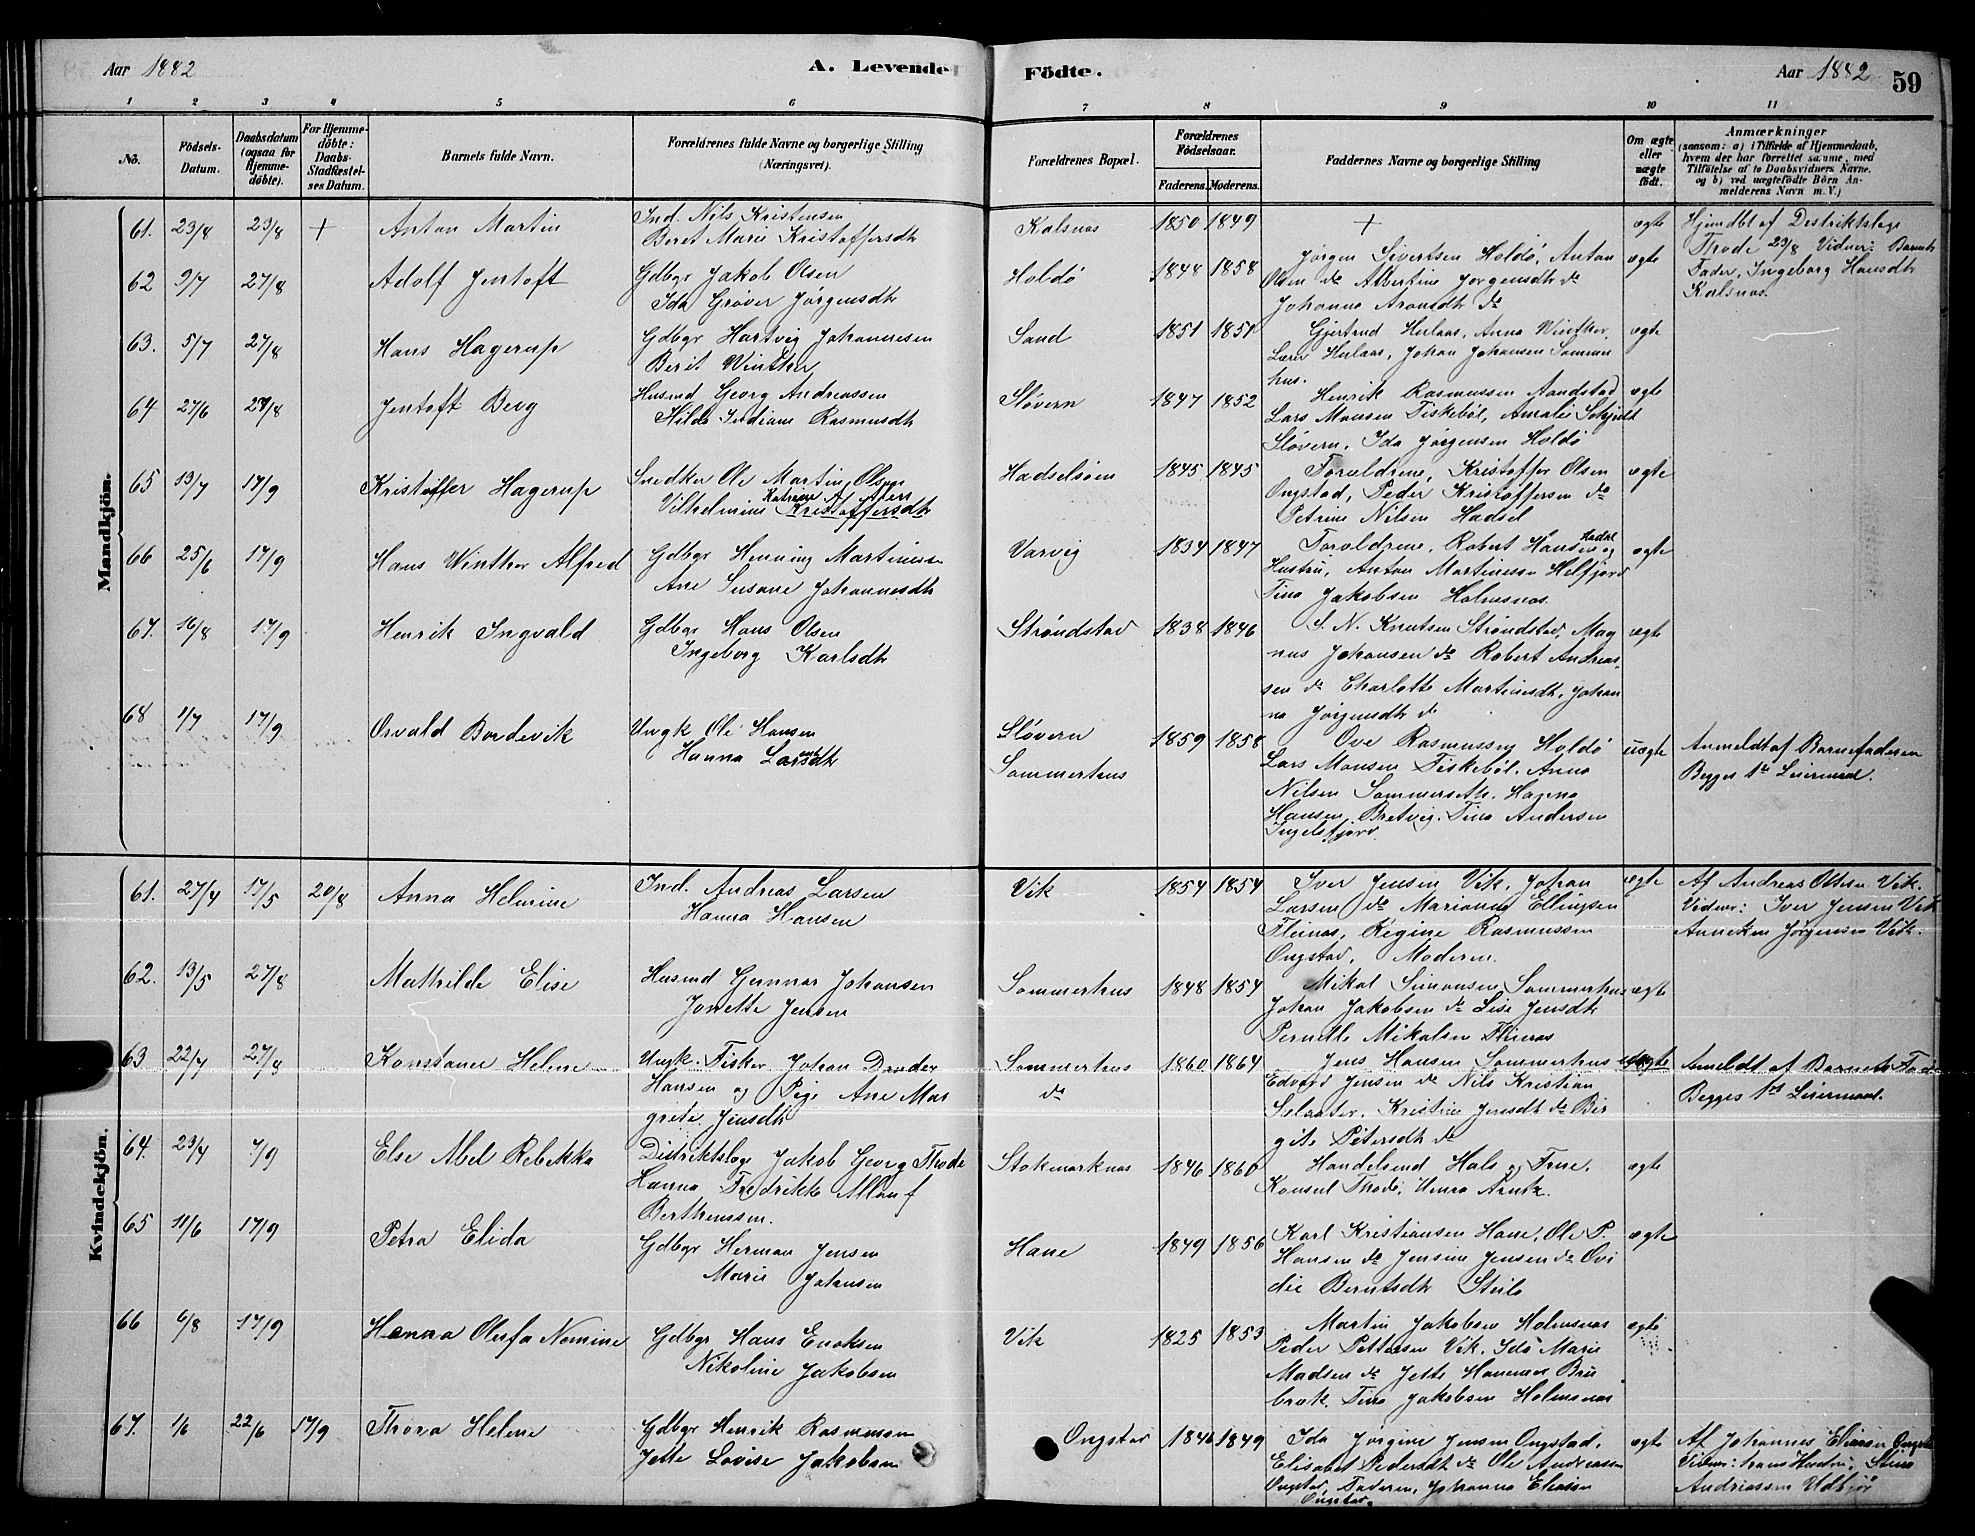 Aar 1882
A. Levende
Födte.
Aar 1882
59
1 2 3 4 5 6 7 8 9 10 11
No.
Födsels-Datum.
Daabsdatum (ogsaa for Hjemme-döbte).
For Hjemme-döbte: Daabs-Stadfæstel-ses Datum.
Barnets fulde Navn.
Forældrenes fulde Navne og borgerlige Stilling (Næringsvei).
Forældrenes Bopæl.
Forældrenes Födselsaar.
Faderens. Moderens.
Faddernes Navne og borgerlige Stilling
Om ægte eller uægte födt.
Anmærkninger
(saasom: a) i Tilfælde af Hjemmedaab,
hvem der har forrettet samme, med
Tilföielse af to Daabsvidners Navne,
og b) ved uægtefödte Börn An-
melderens Navn m. V.)
Mandkjön.
61. 23/8 23/8 + Anton Martin
Ind. Nils Kristensen
Beret Marie Kristoffersdtr
Kalsnæs 1850 1849 + ægte
Hjemdbt af Distriktslæge
Thode 23/8 Vidner: Barnets
Fader, Ingeborg Hansdtr
Kalsnæs.
62 9/7 27/8 Adolf Jentoft
Gdbgr Jakob Olsen
Ida Grøver Jørgensdtr
Holdö 1848 1858
Jørgen Sivertsen Holdö, Anton
Olsen do Albertine Jørgensdtr do
Johanna Aronsdtr do
ægte
63. 5/7 27/8 Hans Hagerup
Gdbgr Hartvig Johannesen
Berit Winther
Sand 1851 1851
Gjertrud Hulaas, Anna Winther,
Lærer Hulaas, Johan Johansen Sommer
hus.
ægte
64 27/6 27/8 Jentoft Berg
Husmd Georg Andreassen
Hilda Indiane Rasmusdtr
Slövern 1847 1852
Henrik Rasmussen Sandstad
Lars Monsen Fiskeböl, Amalie Schjeldt
Slövern, Ida Jørgensen Holdö
ægte
65 13/7 17/9 Kristoffer Hagerup
Snedker Ole Martin Olsen
Vilhelmine Katrine Kristoffersdtr
Hadselsöen 1845 1845
Forældrene, Kristoffer Olsen
Ongstad, Peder Kristoffersen do
Petrine Nilsen Hadsel
ægte
66 25/6 17/9 Hans Winther Alfred
Gdbgr Henning Martinussen
Ane Susane Johannesdtr
Varvig 1834 1847
Forældrene, Robert Hansen og
Hustru, Anton Martinessen Helfjord
Tina Jakobsen Holmsnæs
ægte
67. 16/8 17/9 Henrik Ingvald
Gdbgr Hans Olsen
Ingeborg Karlsdtr
Ströndstad 1838 1846
S. N. Knutsen Ströndstad, Mag
nus Johansen do Robert Andreas
sen do Charlotte Martinsdtr, Johan
na Jørgensdtr do
ægte
68 1/7 17/9 Osvald Bordevik
Ungk Ole Hansen
Hanna Larsdtr
Slövern
Sommerhus
1859 1858
Ove Rasmussen Holdö
Lars Monsen Fiskeböl. Anna
Nilsen Sommerseth. Hanna
Hansen Bretvig. Tina Andersen
Ingelsfjord.
uægte
Anmeldt af Barnefaderen
Begges 1ste Leiermaal.
Kvindekjön.
61. 27/4 17/5 20/8 Anna Helmine
Ind. Andreas Larsen
Hanna Hansen
Vik 1854 1854
Iver Jensen Vik, Johan
Larsen do Marianne Ellingsen
Fleinæs, Regine Rasmussen
Ongstad, Moderen.
ægte
Af Andreas Olsen Vik.
Vidner: Iver Jensen Vik
Anneken Jørgensen Vik.
62. 13/5 27/8 Mathilde Elise
Husmd Gunnar Johansen
Jonette Jensen
Sommerhus 1848 1854
Mikal Simonsen Sommerhus
Johan Jakobsen do Lise Jensdtr
Pernille Mikalsen Fleinæs
ægte
63 22/7 27/8 Konstance Helene
Ungk. Fisker Johan
Hansen og Pige Ane Mar
grete Jensdtr
Sommerhus
do
1860 1864
Jens Hansen Sommerhus
Edvard Jensen do Nils Kristian
Kristine Jensdtr do Bir
gite Petersdtr do
uægte
Anmeldt af Barnets Fad
Begges 1ste Leiermaal.
64. 23/4 7/9 Else Abel Rebekka
Distriktslæge Jakob Georg Thode
Hanna Fredrikke f
Berthensen.
Stokmarknæs 1846 1860
Handelsmd Hals og Frue.
Konsul Thode, Arntz.
ægte
65 11/6 17/9 Petra Elida
Gdbgr Herman Jensen
Marie Johnsen
Hane 1849 1856
Karl Kristiansen Hane, Ole P.
Hansen do Jensine Jensen do Ovi
die Berntsdtr Steilo
ægte
66 6/8 17/9 Hanna Olufa Nomine
Gdbgr Hans Enoksen
Nikoline Jakobsen
Vik 1825 1853
Martin Jakobsen Holmsnæs
Peder Pettersen Vik. Ida Marie
Madsen do Jette Hansen Bru
brak. Tina Jakobsen Holmsnæs
ægte
67. 1/6 22/6 17/9 Thora Helene
Gdbgr Henrik Rasmussen
Jette Lovise Jakobsen
Ongstad 1846 1849
Ida Jørgine Jensen Ongstad,
Elisabet Pedersdtr do Ole Andreassen
Ongstad, Faderen, Johanna Eliassen
Ongstad.
ægte
Af Johannes Eliassen Ongst
Vidner: hans Hustru, Stina
Andreassen Udbjör